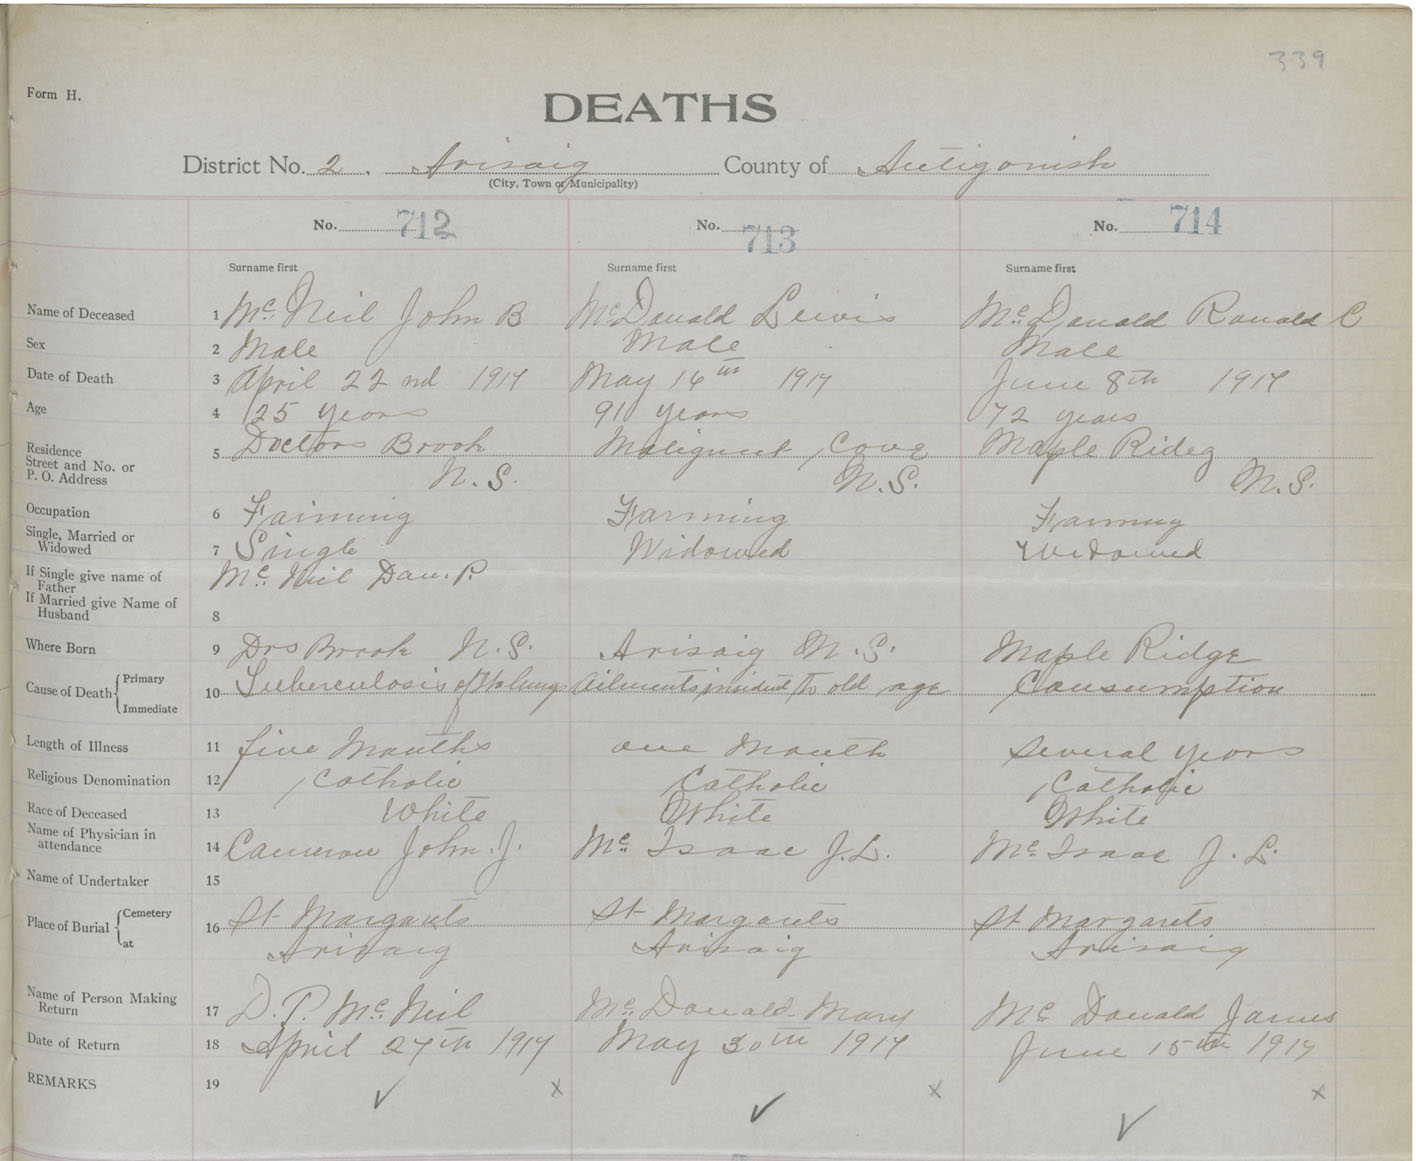 339
Form H.
DEATHS
District No. 2. Arisaig County of Antigonish
(City, Town or Municipality)
No. 712 No. 713 No. 714
Surname first Surname first Surname first
Name of Deceased 1 Mc Neil John B McDonald Lewis Mc Donald Ronald C
Sex 2 Male Male Male
Date of Death 3 April 22nd 1917 May 16th 1917 June 8th 1917
Age 4 25 years 91 years 72 years
Residence
Street and No. or 5 Doctors Brook Malignent Cove Maple Rideg
P. O. Address N.S. N.S. N.S.
Occupation 6 Farming Farming Farming
Single, Married or
Widowed 7 Single Widowed Widowed
If Single give name of Mc Neil Dan. P.
Father
If Married give Name of
Husband 8
Where Born 9 Drs Brook N.S. Arisaig N.S. Maple Ridge
Cause of Death Primary 10 Tuberculosis of the lungs Ailments incident to old age Consumption
Immediate
Length of Illness 11 five Months one Month Several years
Religious Denomination 12 Catholic Catholic Catholic
Race of Deceased 13 White White White
Name of Physician in
attendance 14 Cameron John. J. Mc Isaac J.L. Mc Isaac J.L.
Name of Undertaker 15
Place of Burial Cemetery 16 St Margarets St Margarets St Margarets
at Arisaig Arisaig Arisaig
Name of Person Making
Return 17 D.P. Mc Neil Mc Donald Mary Mc Donald James
Date of Return 18 April 27th 1917 May 30th 1917 June 15th 1917
REMARKS 19